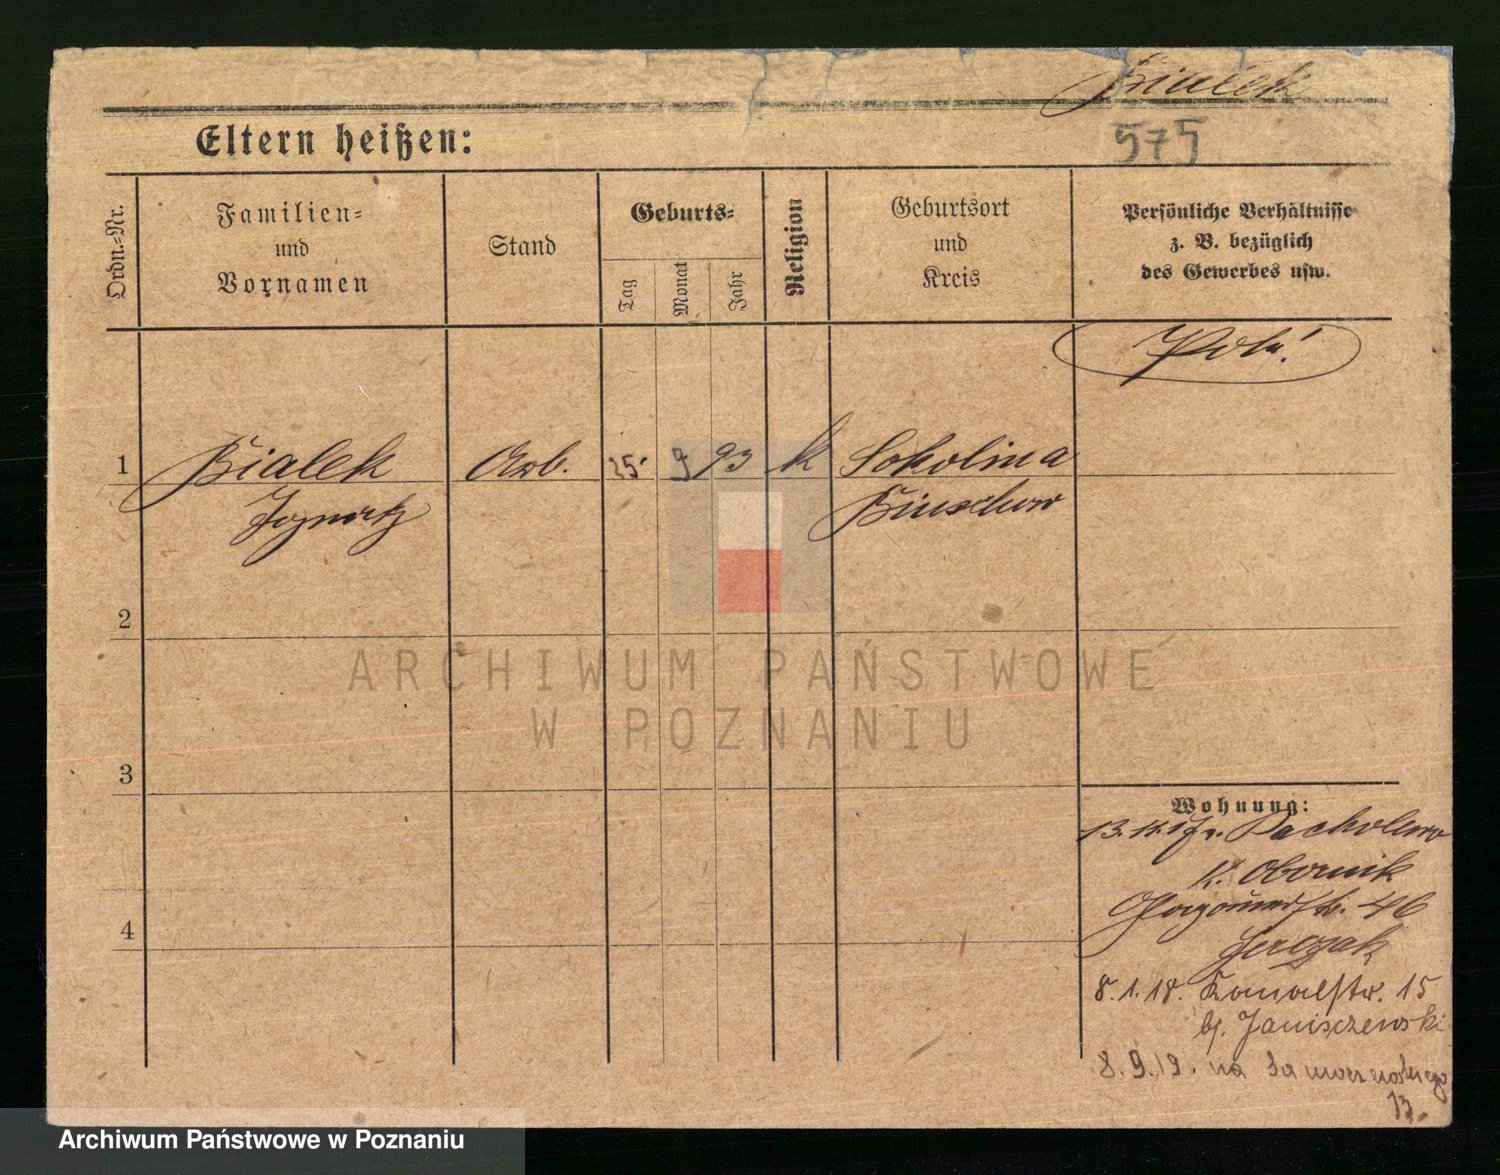 Bialek
575
Eltern heißen:
Ordn.-Nr.
Familien-
und
Vornamen
Stand
Geburts-
Tag
Monat
Jahr
Religion
Geburtsort
und
Kreis
Persönliche Verhältnisse
z. B. bezüglich
des Gewerbes usw.
1 Bialek Arb. 25. 9 93 k Sokolina
Ignatz
2
3
4
Wohnung:
13.11.17 v. Pacholewo
K. Obornik
46
Jerczak
8.1.18. Kanalstr. 15
b/. Janiszewski
8.9.19. na
13.
ARCHIWUM PAŃSTWOWE
W POZNANIU
Archiwum Państwowe w Poznaniu